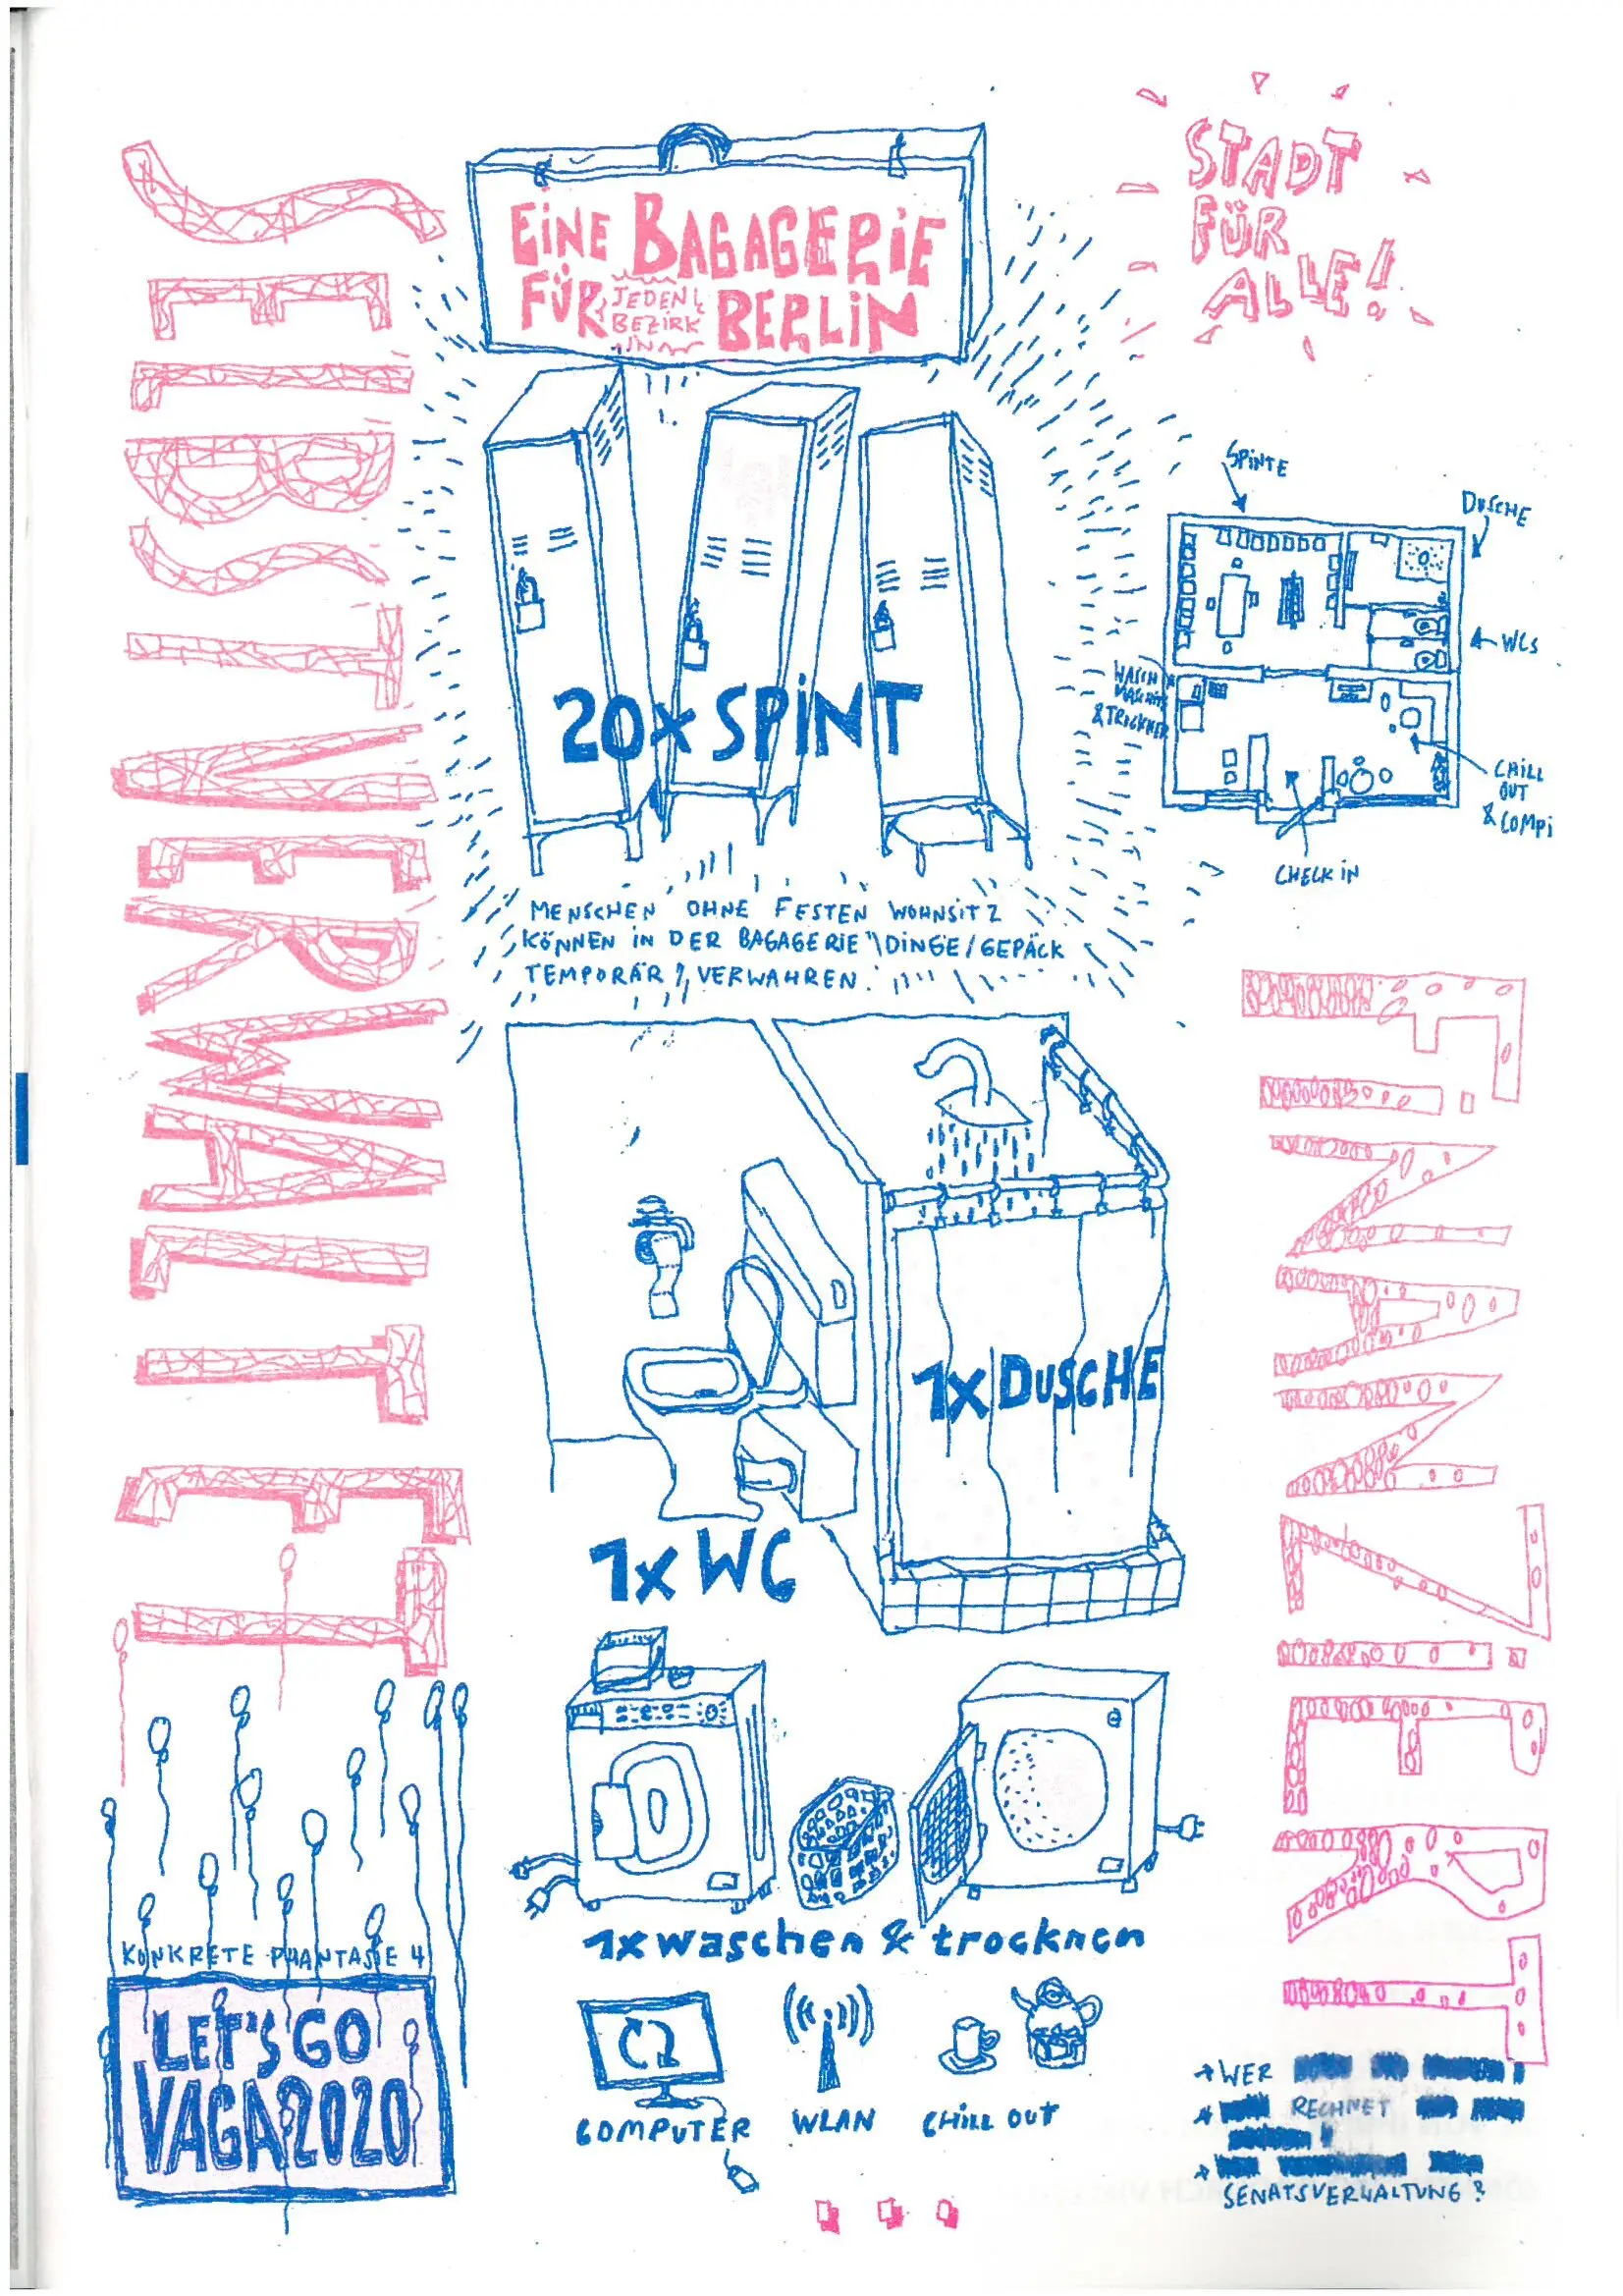 SELBSTVERWALTET
EINE BAGAGERIE
FÜR JEDEN BEZIRK IN BERLIN
STADT
FÜR
ALLE!
20x SPINT
SPINTE
DUSCHE
WCS
WASCH
MASCHINE
& TROCKNER
CHILL
OUT
& COMPI
CHECK IN
MENSCHEN OHNE FESTEN WOHNSITZ
KÖNNEN IN DER BAGAGERIE DINGE/GEPÄCK
TEMPORÄR VERWAHREN.
FINANZIERT
1x DUSCHE
1x WC
1x waschen & trocknen
COMPUTER
WLAN
CHILL OUT
KONKRETE PHANTASIE 4
LET'S GO
VAGA2020
→ WER
RECHNET
SENATSVERWALTUNG?